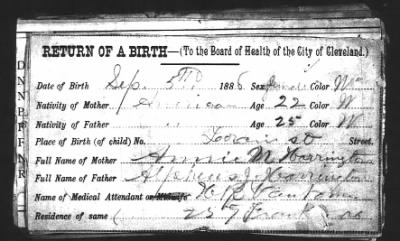 RETURN OF A BIRTH—(To the Board of Health of the City of Cleveland.)
Date of Birth Sep. 5th 1886 Sex Female Color W
Nativity of Mother American Age 22 Color W
Nativity of Father " Age 25 Color W
Place of Birth (of child) No. St Street.
Full Name of Mother Annie M. Warrington
Full Name of Father Alpheus J. Warrington
Name of Medical Attendant or Midwife
Residence of same 257 Franklin av
D
N
N
P
F
F
N
R